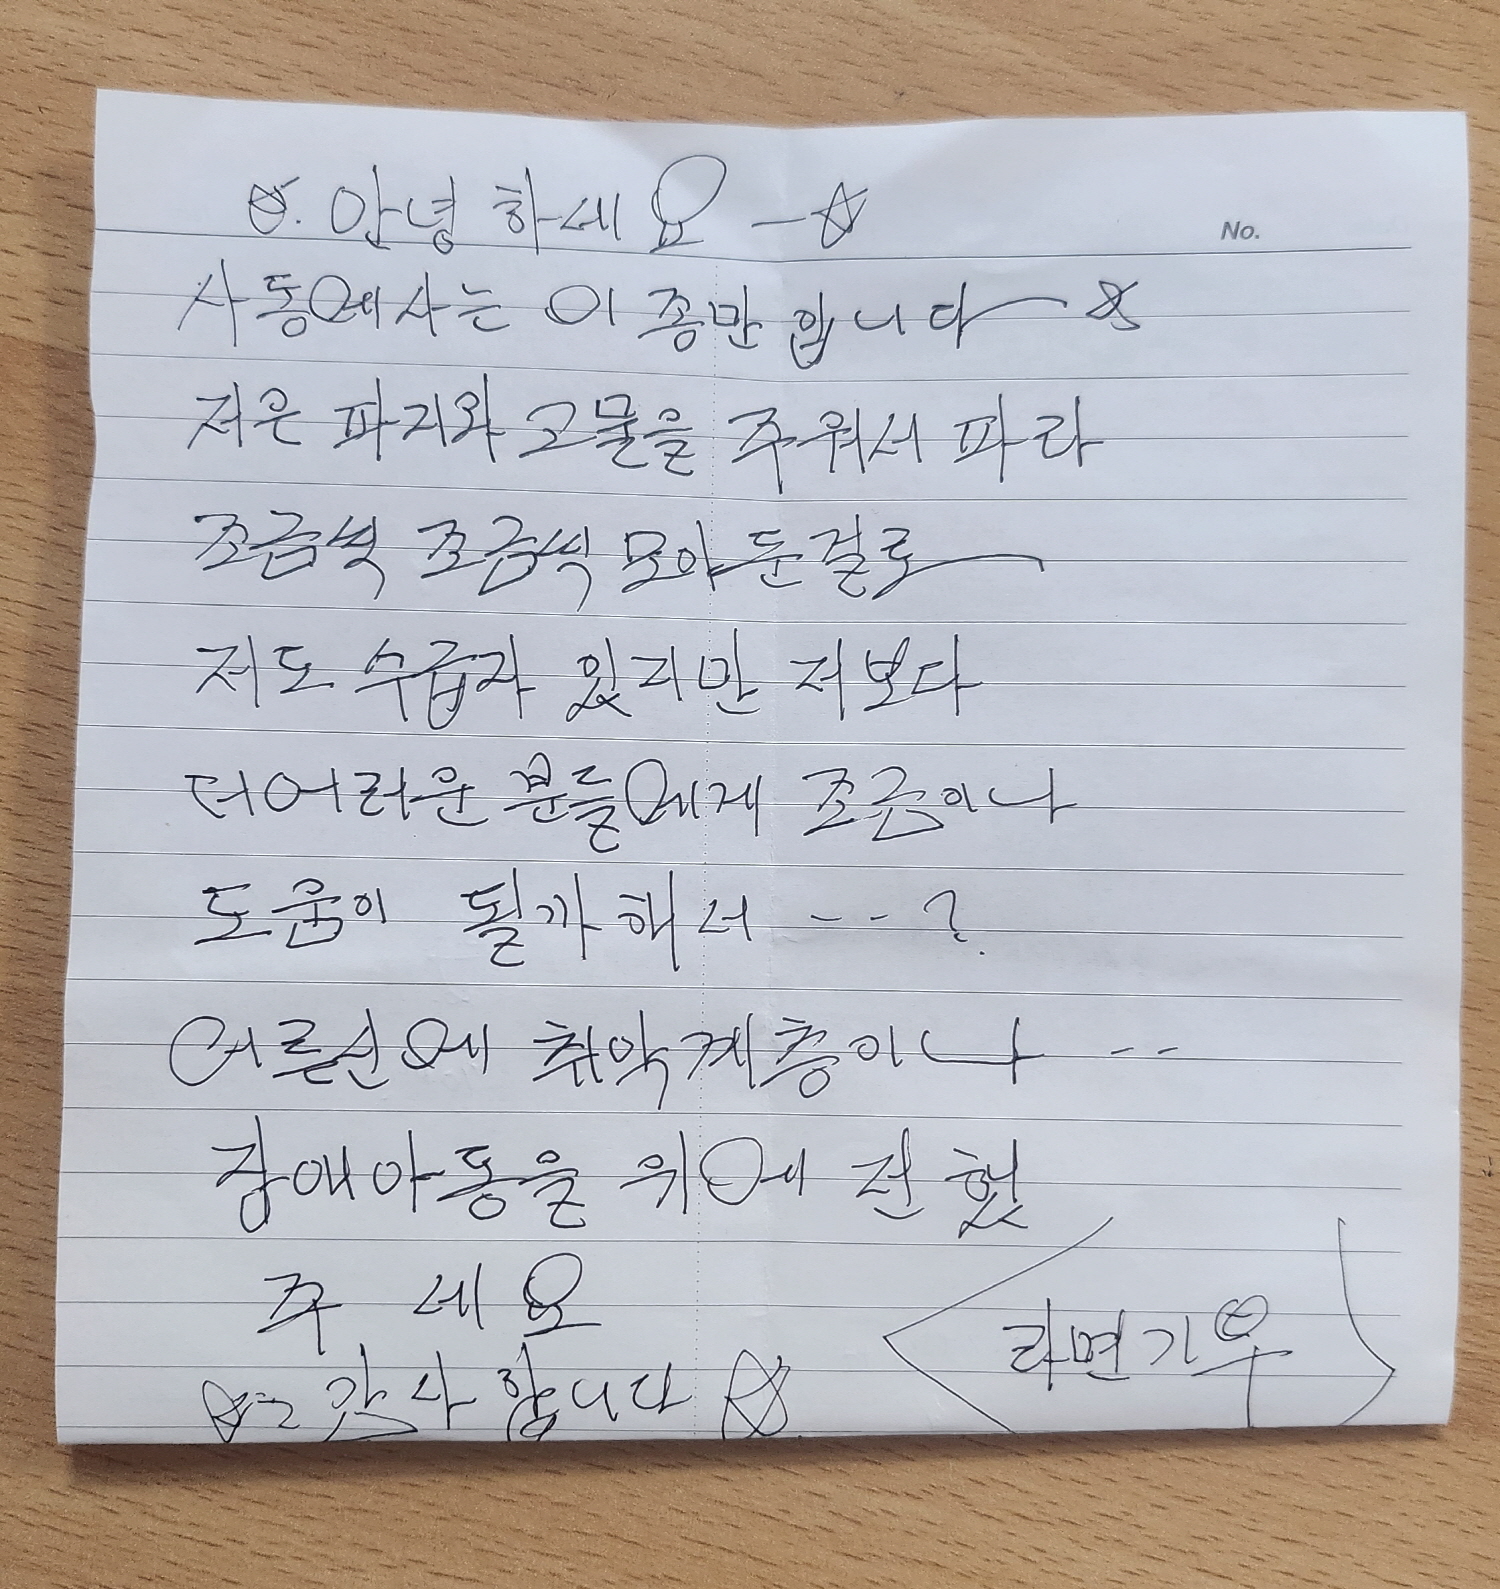 ☆. 안녕 하세요 - ☆
No.
사동에사는 이종만 입니다 ☆
저은 파지와 고물을 주워서 파라
조금씩 조금씩 모아 둔걸로
저도 수급자 있지만 저보다
더어러운 분들에게 조금이나
도움이 될까 해서 --?
어른신에 취약계층이나 --
장애아동을 위에 전했
주 세요
라면기우
☆= 감사 합니다 ☆